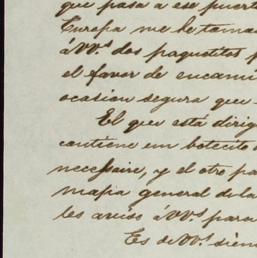 que pasa a ese puert
Europa me he toma
á VV.ˢ dos paquetitos p
el favor de encami
ocasion segura que
El que está dirig
contiene un botecito
necesaire, y el otro pa
mapa general de la
les aviso á VV.ˢ para
Es de VV.ˢ siem